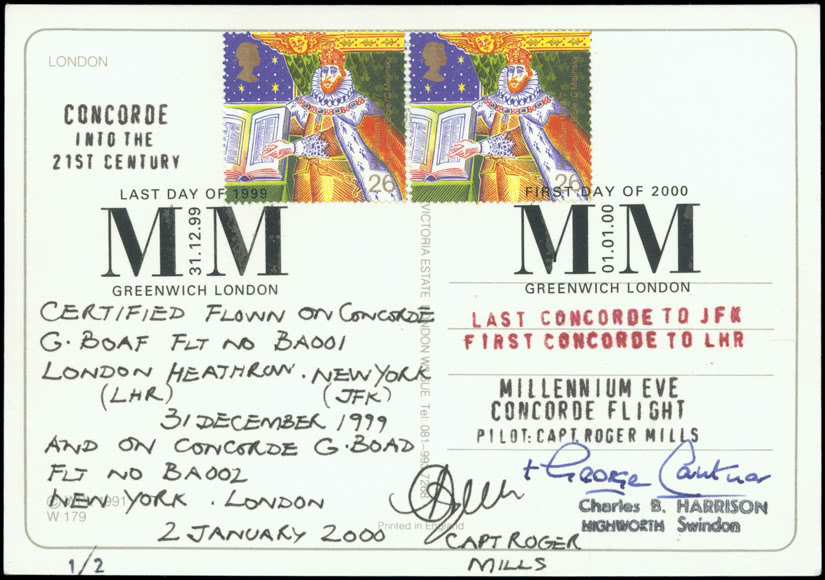 LONDON
CONCORDE
INTO THE
21ST CENTURY
26
26
LAST DAY OF 1999
MM
31.12.99
GREENWICH LONDON
FIRST DAY OF 2000
MM
01.01.00
GREENWICH LONDON
CERTIFIED FLOWN ON CONCORDE
G.BOAF FLT NO BA001
LONDON HEATHROW . NEW YORK
(LHR) (JFK)
31 DECEMBER 1999
AND ON CONCORDE G.BOAD
FLT NO BA002
NEW YORK . LONDON
2 JANUARY 2000
1991
W 179
1/2
VICTORIA ESTATE LONDON Tel: 081
Printed in England
CAPT ROGER
MILLS
LAST CONCORDE TO JFK
FIRST CONCORDE TO LHR
MILLENNIUM EVE
CONCORDE FLIGHT
PILOT: CAPT. ROGER MILLS
George
Charles B. HARRISON
HIGHWORTH Swindon